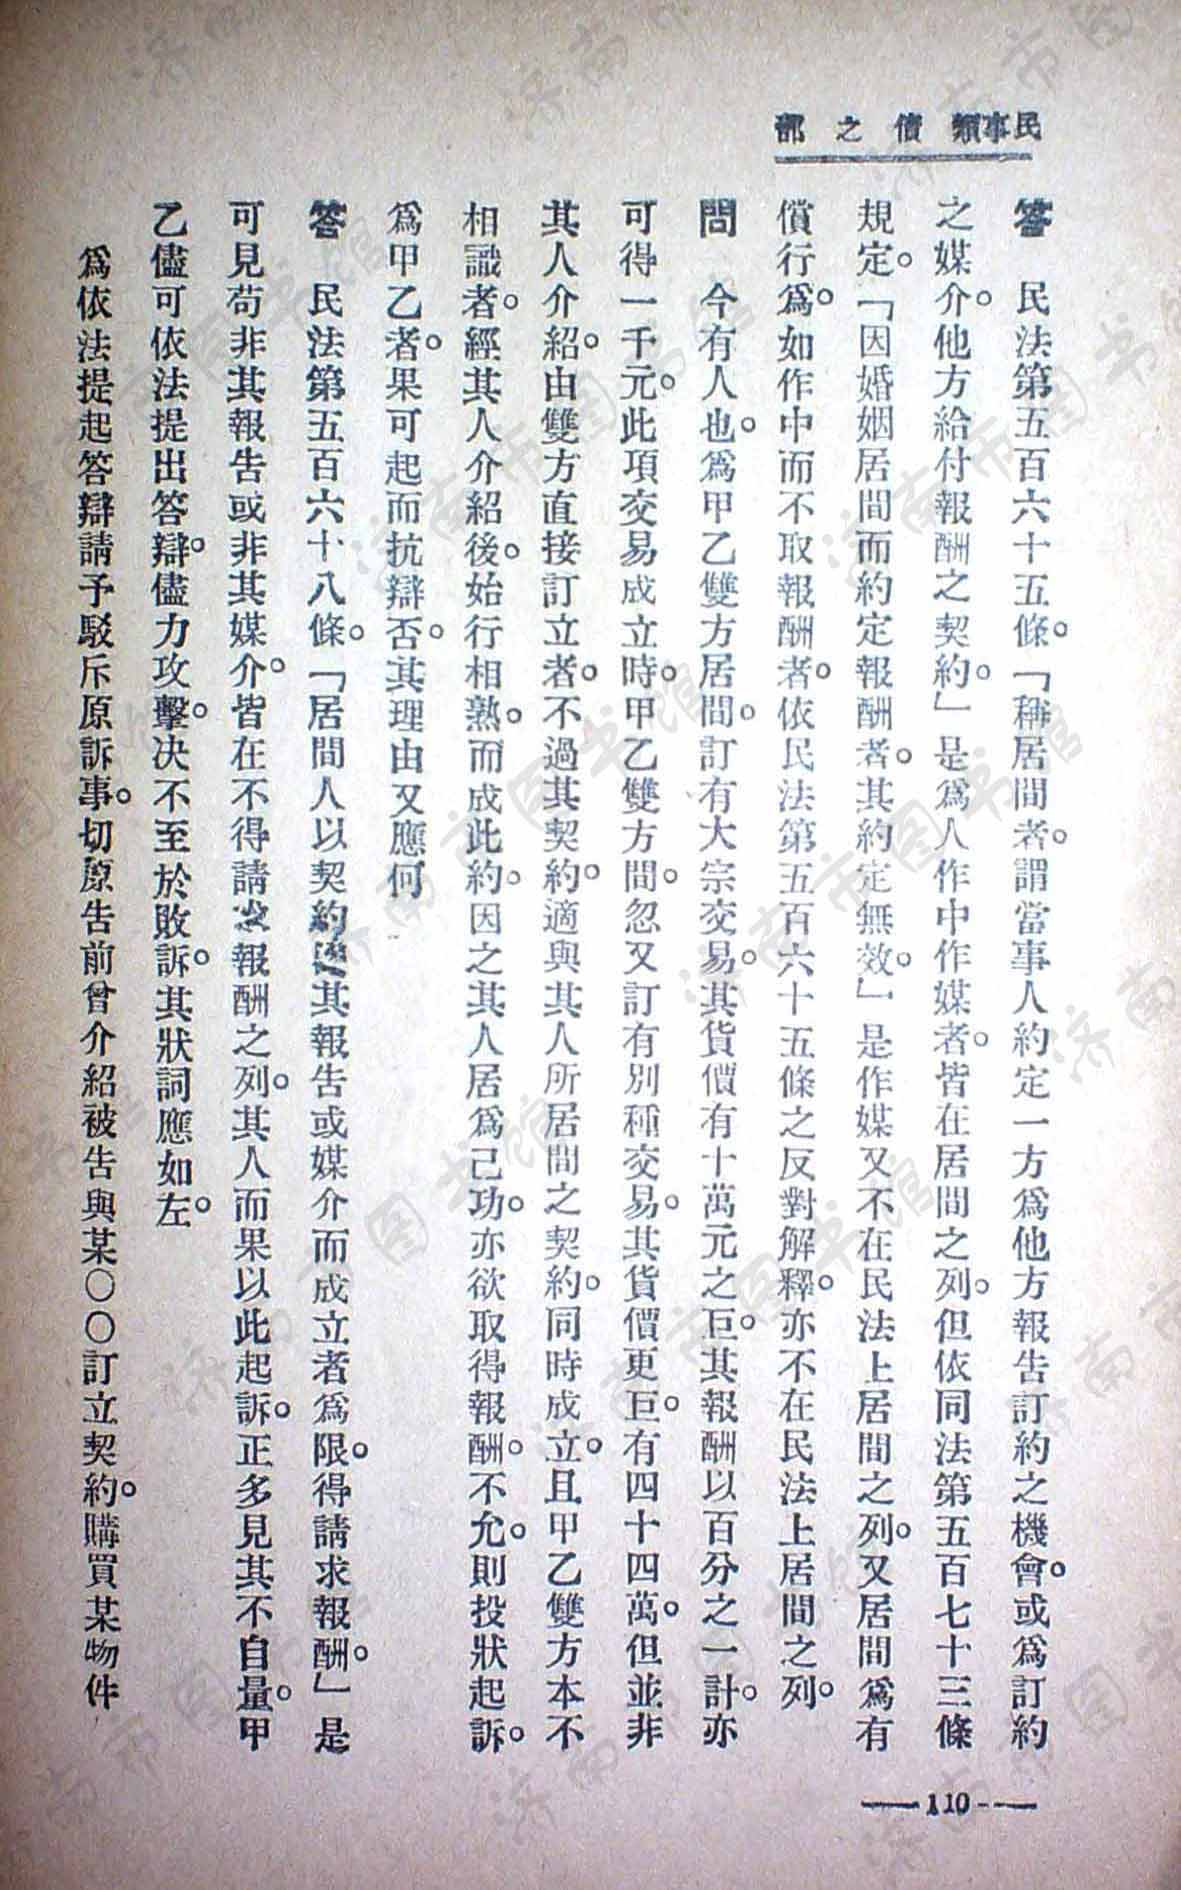 民事類債之部
答　民法第五百六十五條。「稱居間者。謂當事人約定一方爲他方報告訂約之機會。或爲訂約
之媒介。他方給付報酬之契約。」是爲人作中作媒者。皆在居間之列。但依同法第五百七十三條
規定。「因婚姻居間而約定報酬者。其約定無效。」是作媒又不在民法上居間之列。又居間爲有
償行爲。如作中而不取報酬者。依民法第五百六十五條之反對解釋。亦不在民法上居間之列。
問　今有人也。爲甲乙雙方居間。訂有大宗交易。其貨價有十萬元之巨。其報酬以百分之一計。亦
可得一千元。此項交易成立時。甲乙雙方間。忽又訂有別種交易。其貨價更巨。有四十四萬。但並非
其人介紹。由雙方直接訂立者。不過其契約。適與其人所居間之契約。同時成立。且甲乙雙方本不
相識者。經其人介紹後。始行相熟。而成此約。因之其人居爲己功。亦欲取得報酬。不允。則投狀起訴。
爲甲乙者。果可起而抗辯否。其理由又應何
答　民法第五百六十八條。「居間人以契約其報告或媒介而成立者爲限。得請求報酬。」是
可見苟非其報告或非其媒介。皆在不得請求報酬之列。其人而果以此起訴。正多見其不自量。甲
乙儘可依法提出答辯。儘力攻擊。決不至於敗訴。其狀詞應如左。
爲依法提起答辯請予駁斥原訴事。切原告前曾介紹被告與某〇〇訂立契約。購買某物件
110
济南市图书馆